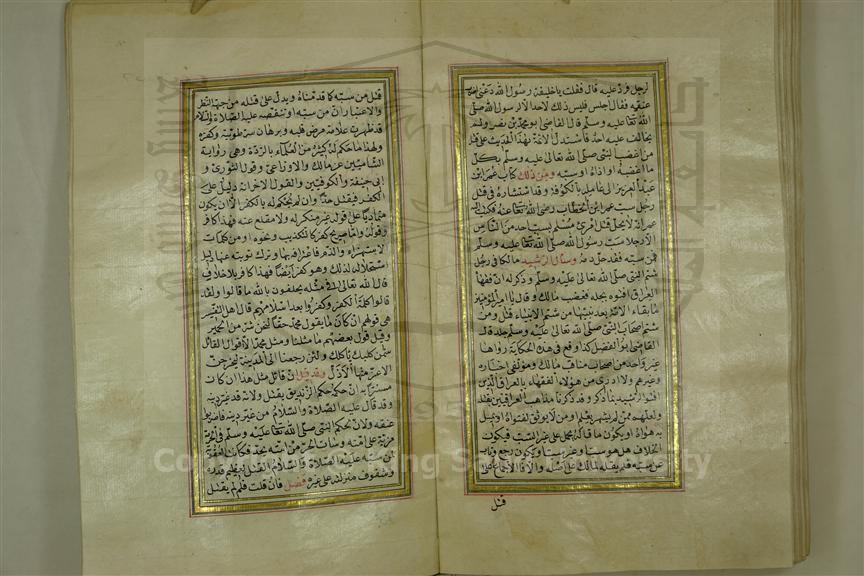 لرجل فرد عليه قال فقلت يا خليفة رسول الله دعني اضرب
عنقه فقال اجلس فليس ذلك لاحد الا لرسول الله صلى
الله تعالى عليه وسلم قال القاضي ابو محمد بن نصر ولم
يخالف عليه احد فاستدل الائمة بهذا الحديث على قتل
من اغضب النبي صلى الله تعالى عليه وسلم بكل
ما اغضبه او اذاه او سبه ومن ذلك كتاب عمر ابن
عبد العزيز الى عامله بالكوفة وقد استشاره في قتل
رجل سب عمر ابن الخطاب رضي الله تعالى عنه فكتب اليه
عمر انه لا يحل قتل امرئ مسلم بسب احد من الناس
الا رجلا سب رسول الله صلى الله تعالى عليه وسلم
فمن سبه فقد حل دمه وسأل الرشيد مالكا في رجل
شتم النبي صلى الله تعالى عليه وسلم وذكر له ان فقهاء
العراق افتوه بجلده فغضب مالك وقال يا امير المؤمنين
ما بقاء الامة بعد نبيها من شتم الانبياء قتل ومن
شتم اصحاب النبي صلى الله تعالى عليه وسلم جلد قال
القاضي ابو الفضل كذا وقع في هذه الحكاية رواها
غير واحد من اصحاب مناقب مالك ومؤلفي اخباره
وغيرهم ولا ادري من هؤلاء الفقهاء بالعراق الذين
افتوا الرشيد بما ذكر وقد ذكرنا مذهب العراقيين بقتله
ولعلهم ممن لم يشهر بعلم او من لا يوثق بفتواه او يميل
به هواه او يكون ما قاله محمل على غير السب فيكون
الخلاف هل هو سب او غير سب او يكون رجع وتاب
عن سبه فلم يقله لمالك على اصله والا فالاجماع على
قتل
قتل من سبه كما قدمناه ويدل على قتله من جهة النظر
والاعتبار ان من سبه او تنقصه عليه الصلاة والسلام
فقد ظهرت علامة مرض قلبه وبرهان سر طويته وكفره
ولهذا ما حكم له كثير من العلماء بالردة وهي رواية
الشاميين عن مالك والاوزاعي وقول الثوري و
ابي حنيفة والكوفيين والقول الاخر انه دليل على
الكفر فيقتل حدا وان لم يحكم له بالكفر الا ان يكون
متماديا على قوله غير منكر له ولا مقلع عنه فهذا كافر
وقوله اما صريح كفر كالتكذيب ونحوه او من كلمات
الاستهزاء والذم فاعترافه بها وترك توبته عنها دليل
استحلاله لذلك وهو كفر ايضا فهذا كافر بلا خلاف
قال الله تعالى في مثله يحلفون بالله ما قالوا ولقد
قالوا كلمة الكفر وكفروا بعد اسلامهم قال اهل التفسير
هي قولهم ان كان ما يقول محمد حقا لنحن شر من الحمير
وقيل قول بعضهم ما مثلنا ومثل محمد الا قول القائل
سمن كلبك يأكلك ولئن رجعنا الى المدينة ليخرجن
الاعز منها الاذل وقد قيل ان قائل مثل هذا ان كان
مستترا به ان حكمه حكم الزنديق يقتل ولانه قد غير دينه
وقد قال عليه الصلاة والسلام من غير دينه فاضربوا
عنقه ولان لحكم النبي صلى الله تعالى عليه وسلم في الحرمة
مزية على امته وساب الحر من امته يحد فكانت العقوبة
لمن سبه عليه الصلاة والسلام القتل لعظيم قدره
وشفوف منزلته على غيره فصل فان قلت فلم لم يقتل